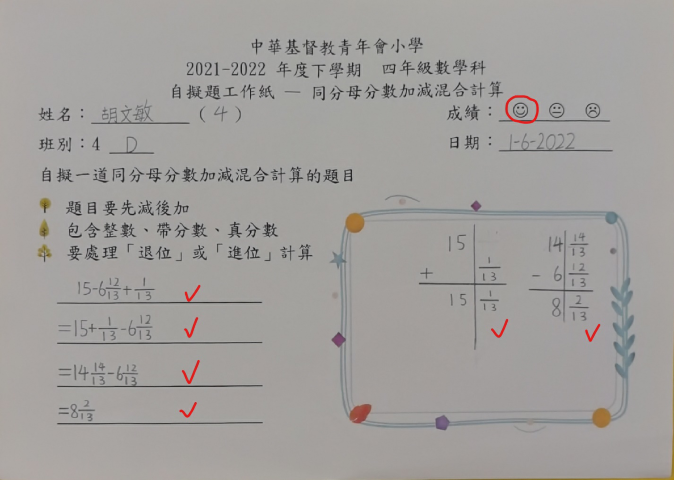 中華基督教青年會小學
2021-2022 年度下學期　四年級數學科
自擬題工作紙 — 同分母分數加減混合計算
姓名：胡文敏（4）　成績：☺ 😐 ☹
班別：4 D　日期：1-6-2022
自擬一道同分母分數加減混合計算的題目
題目要先減後加
包含整數、帶分數、真分數
要處理「退位」或「進位」計算
15-6 12/13+1/13
=15+1/13-6 12/13
=14 14/13-6 12/13
=8 2/13
15
+ 1/13
15 1/13
14 14/13
- 6 12/13
8 2/13